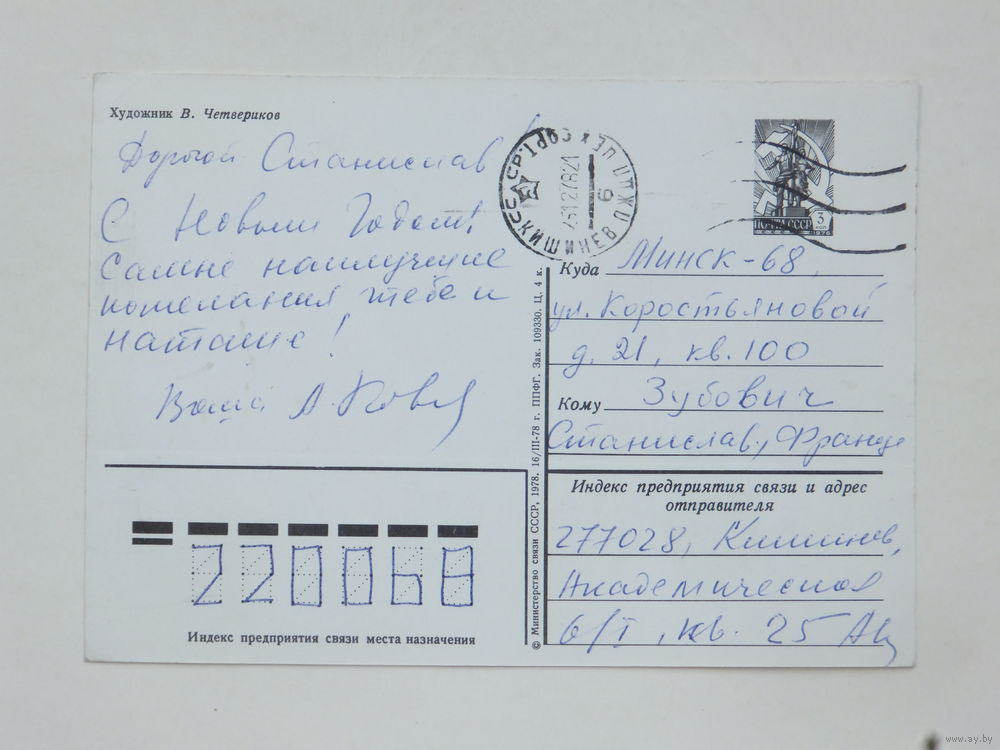 Художник В. Четвериков
Дорогой Станислав!
С Новым Годом!
Самые наилучшие
пожелания тебе и
Наталие!
Ваш А.
ПОЧТА СССР 3 КОП
1976
КИШИНЕВ
Куда Минск-68,
ул. Коростьяновой
д. 21, кв. 100
Кому Зубович
Станислав, Франце
Индекс предприятия связи и адрес
отправителя
277028, Кишинев,
Академическая
6/1, кв. 25
220068
Индекс предприятия связи места назначения
© Министерство связи СССР, 1978. 16/III-78 г. ППФГ. Зак. 109330. Ц. 4 к.
www.ay.by